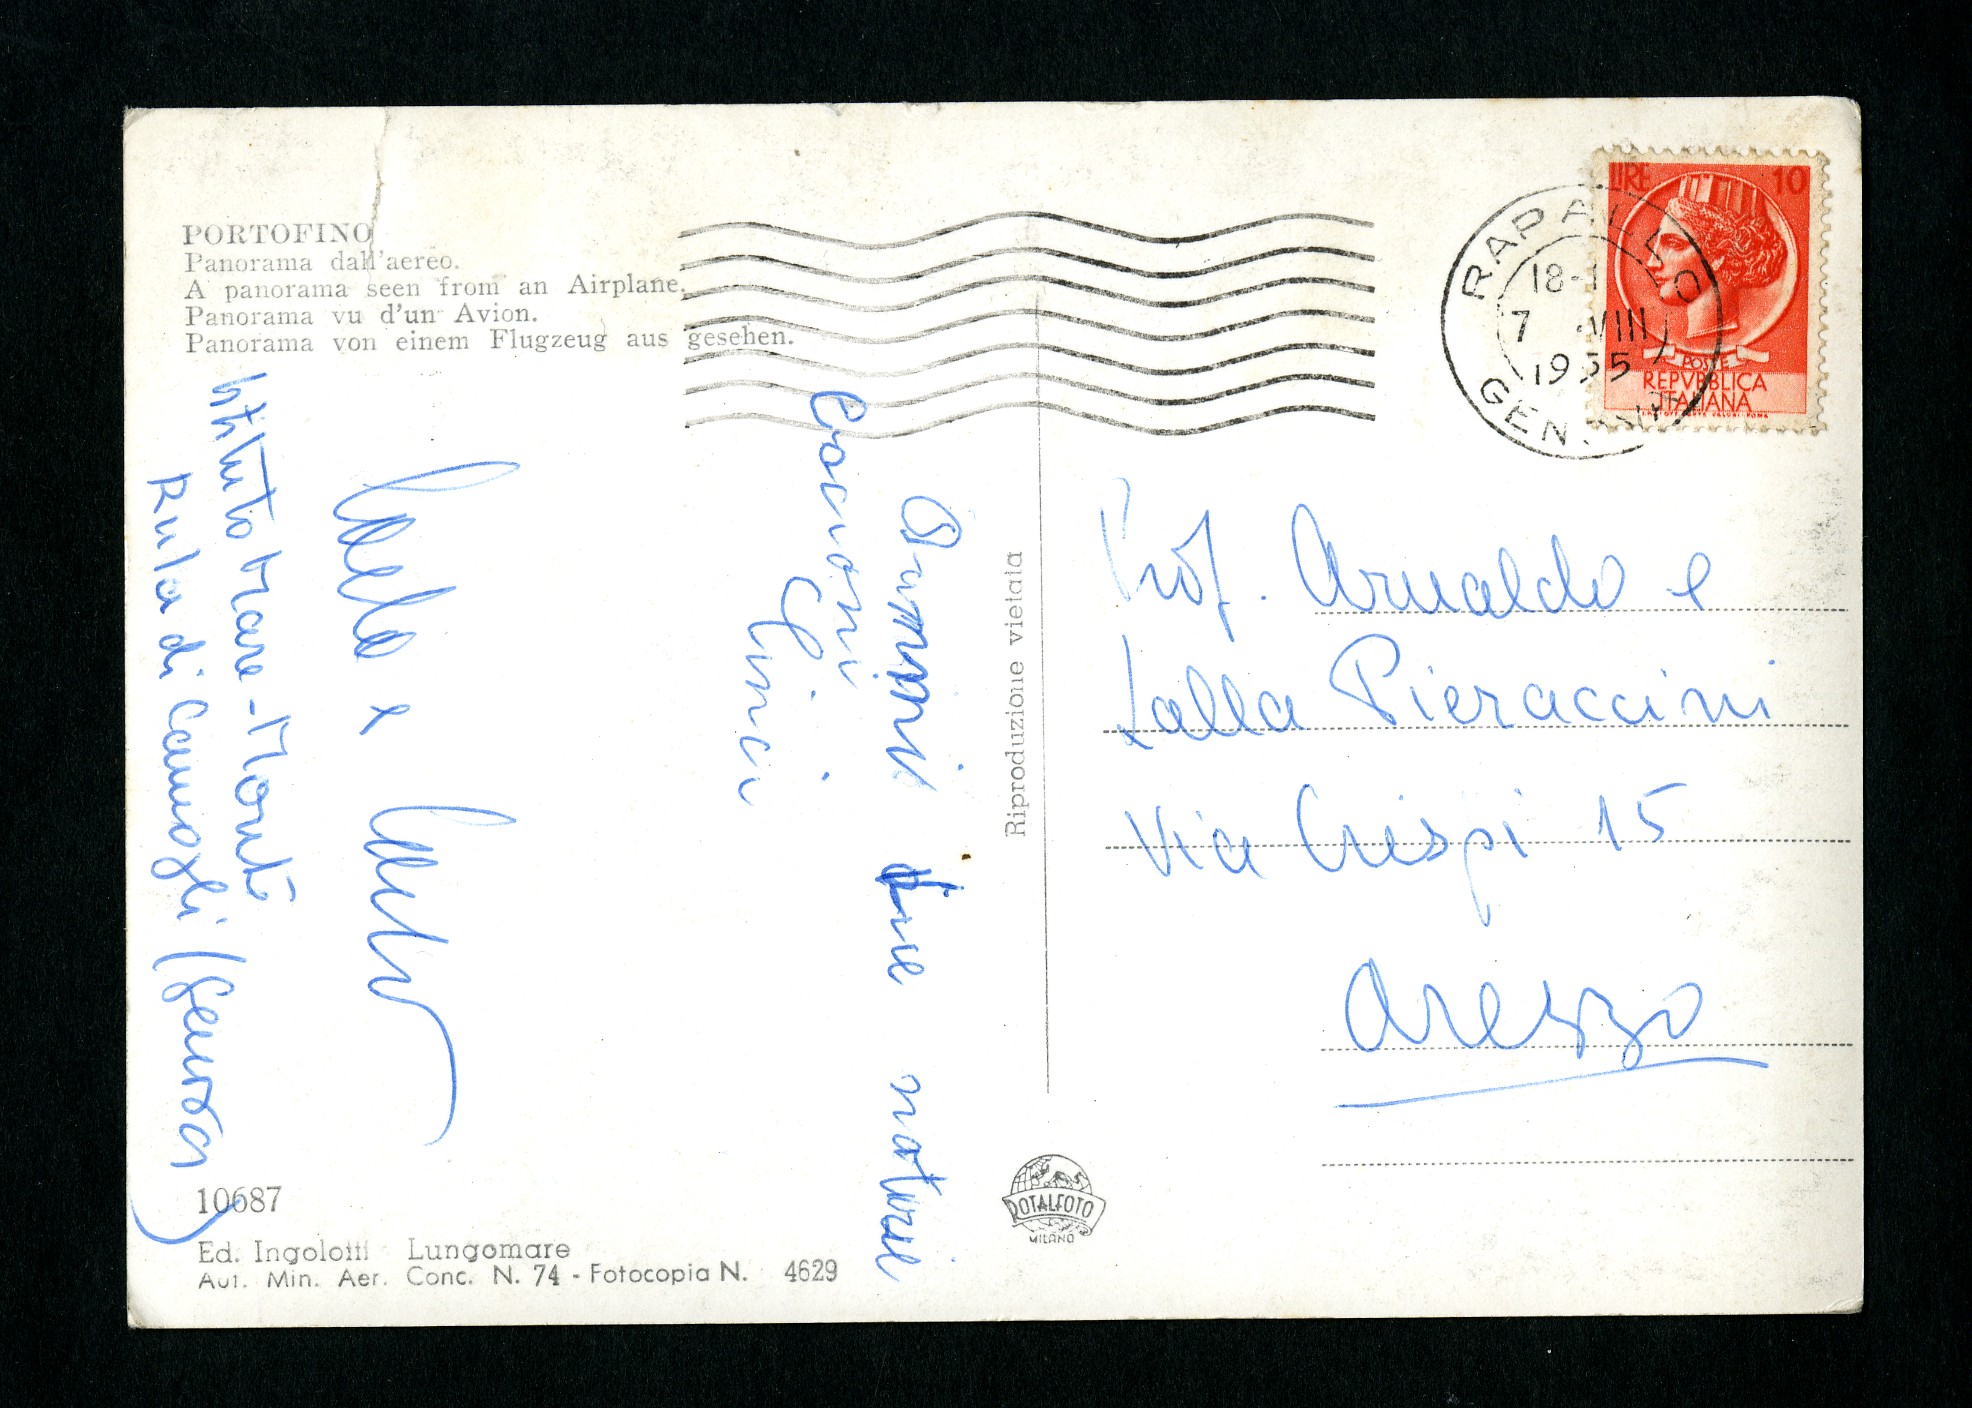 PORTOFINO
Panorama dall'aereo.
A panorama seen from an Airplane.
Panorama vu d'un Avion.
Panorama von einem Flugzeug aus gesehen.
LIRE 10
POSTE
REPVBBLICA
ITALIANA
RAPALLO
18-1
7 VIII
1955
GENOVA
Prof. Arnaldo e
Lalla Pieraccini
Via Crispi 15
Arezzo
Riproduzione vietata
notizie
Bacioni
e
Istituto Mare-Monti
Ruta di Camogli (Genova)
10687
Ed. Ingolotti Lungomare
Aut. Min. Aer. Conc. N. 74 - Fotocopia N. 4629
ROTALFOTO
MILANO